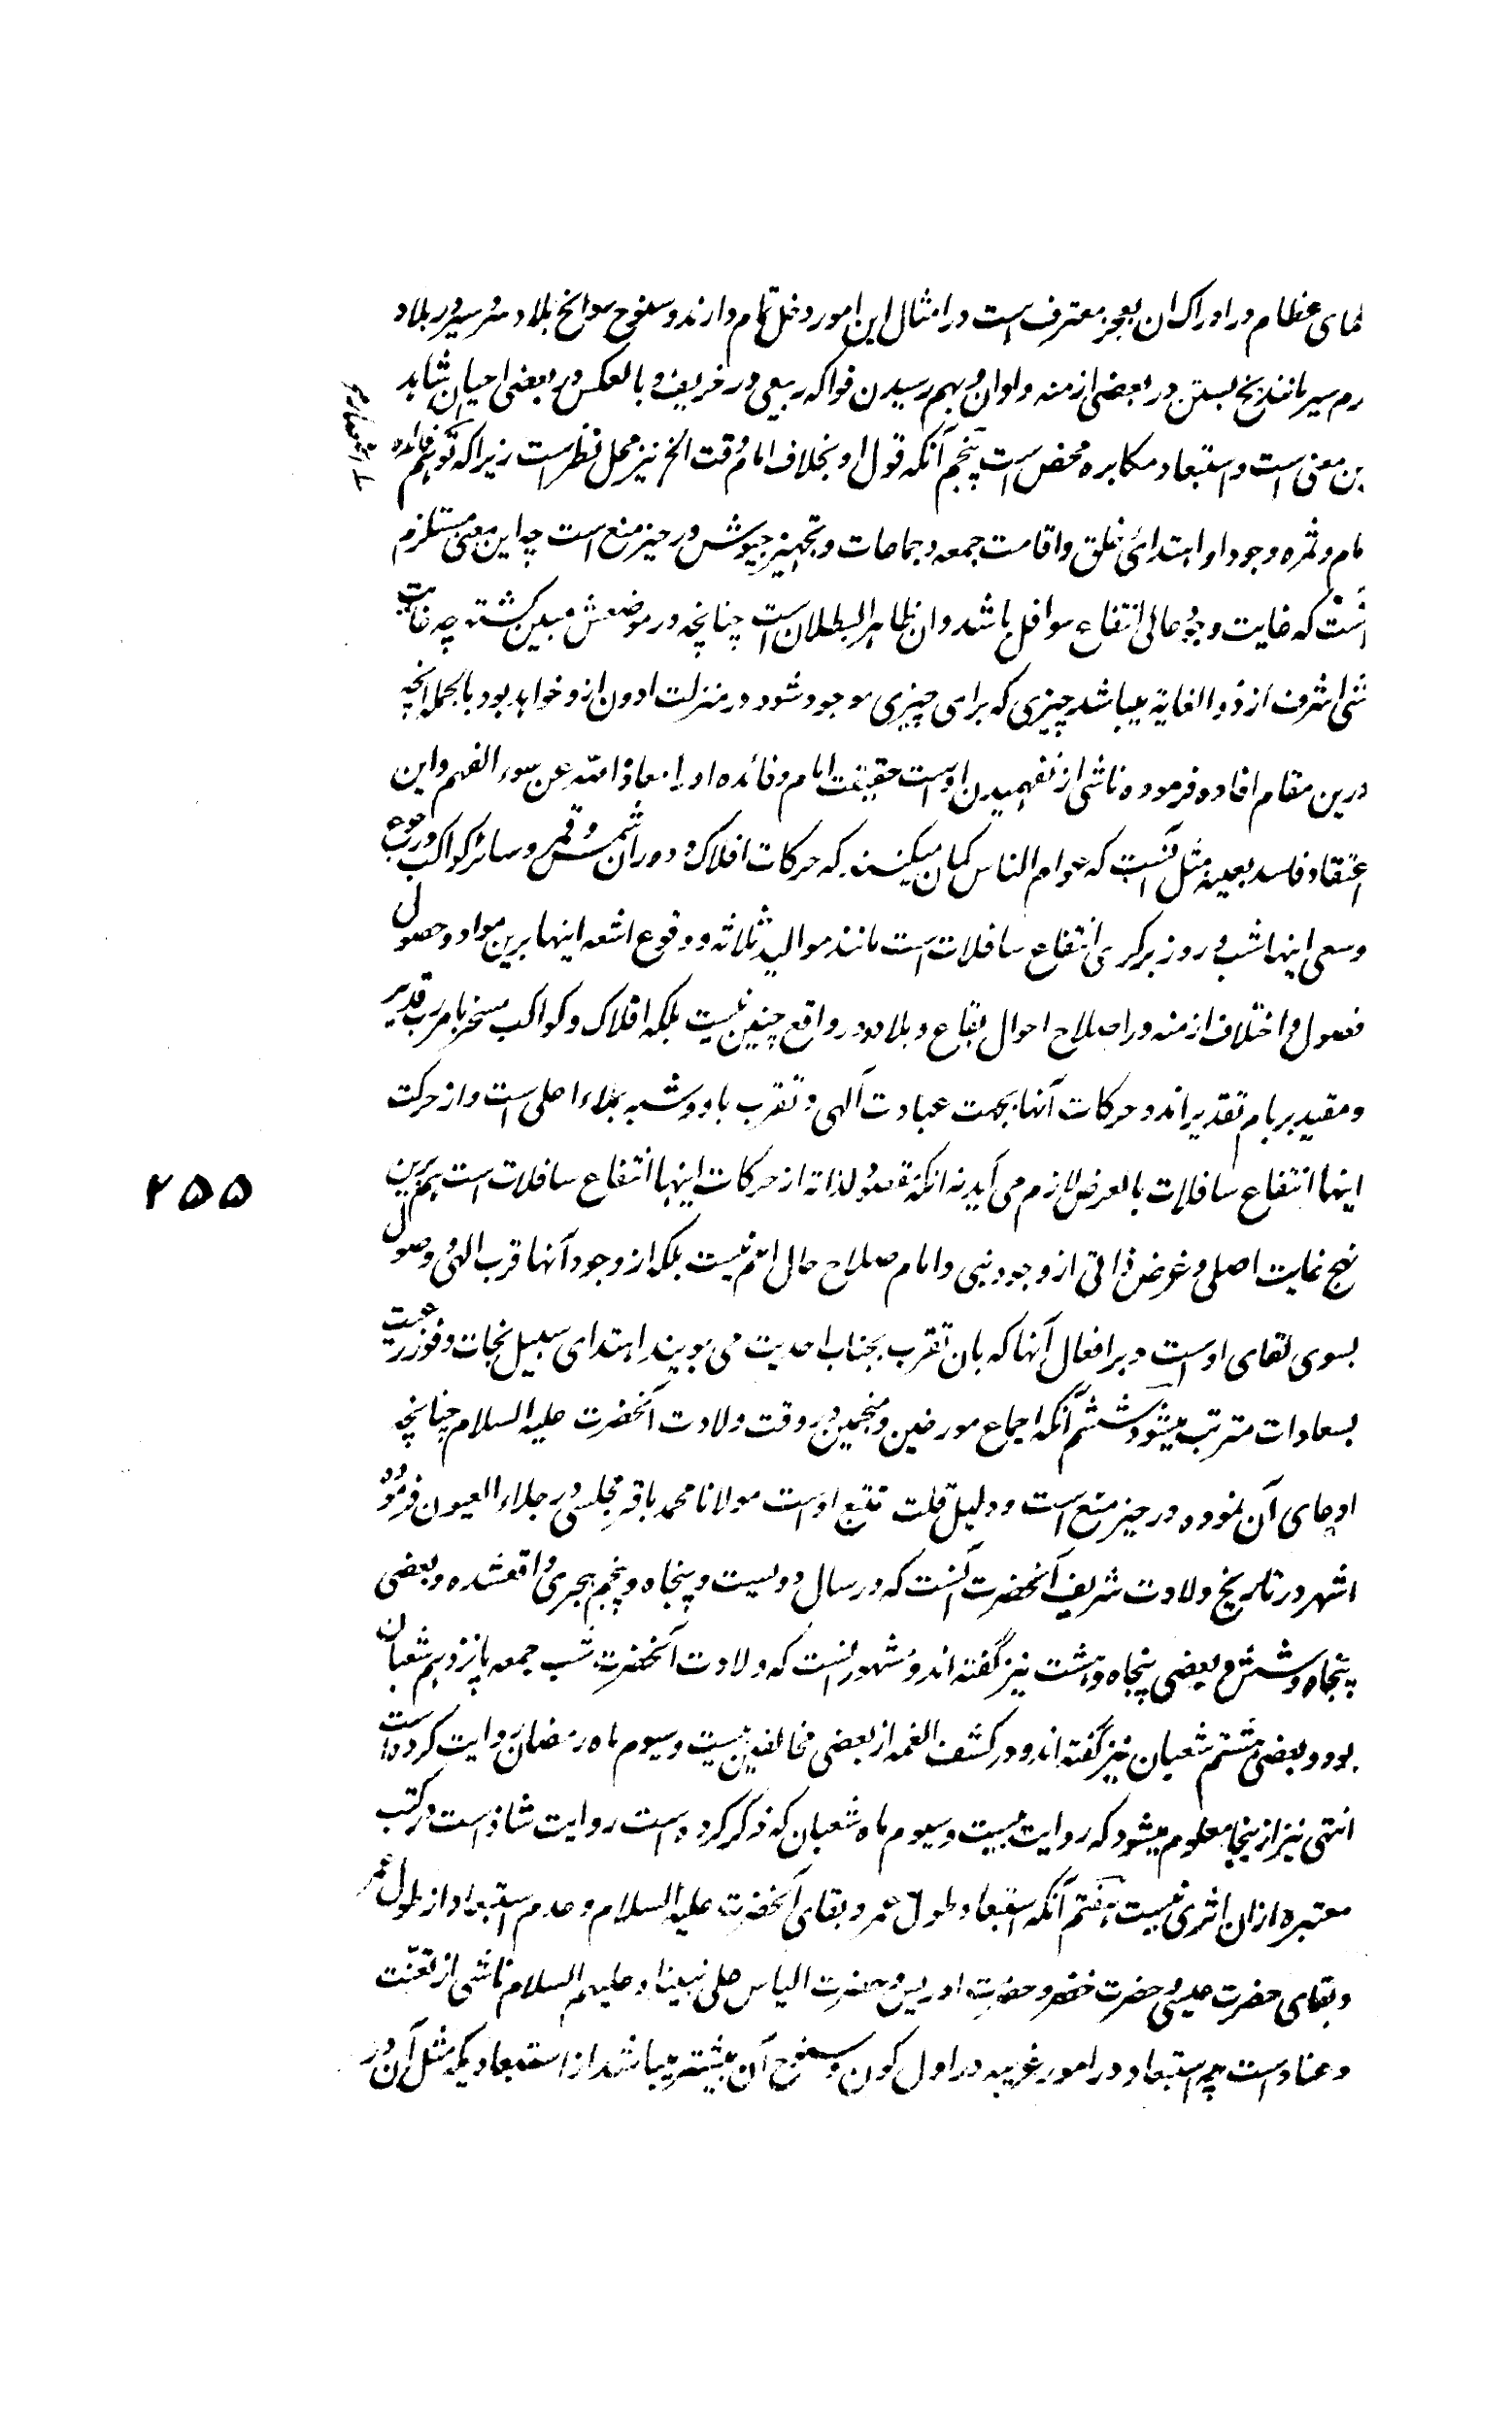 لمای عظام در ادراک ان بعجز معترف است در امثال این امور دخل تمام دارند و سنوح سوانخ بلاد سردسیر در بلاد
رم سیر مانند یخ بستن در بعضی ازمنه و اوان و بهم رسیدن فواکه ربیعی در خریف و بالعکس در بعضی احیان شاهد
ین معنی است و استبعاد مکابره محض است پنجم آنکه قول او بخلاف امام وقت الخ نیز محل نظر است زیرا که توهم فائده
مام و ثمره وجود او اهتدائ خلق و اقامت جمعه و جماعات و تجهیز جیوش در حیز منع است چه این معنی مستلزم
انست که غایت وجود عالی انتفاع سوافل باشد و ان ظاهر البطلان است چنانچه در موضعش مبین گشته چه غایت
شی اشرف از ذو الغایة میباشد چیزی که برای چیزی موجود شود در منزلت ادون ازو خواهد بود بالجمله انچه
درین مقام افاده فرموده ناشی از نفهمیدن اوست حقیقت امام و فائده او را معاذ الله عن سوء الفهم و این
اعتقاد فاسد بعینه مثل آنست که عوام الناس کمان میکنند که حرکات افلاک و دوران شمس و قمر و سائر کواکب و رجوع
و سعی اینها شب و روز برکری انتفاع سافلات است مانند موالید ثلاثه و وقوع اشعه اینها برین مواد و حصول
فصول و اختلاف ازمنه در اصلاح احوال بقاع و بلاد و در واقع چنین نیست بلکه افلاک و کواکب مسخر بامر رب قدیر
و مقید بریام تقدیر اند و حرکات آنها بجهت عبادت آلهی و تقرب باو و تشبه بملاء اعلی است و از حرکت
اینها انتفاع سافلات بالعرض لازم می آید نه انکه مقصود لذاته از حرکات اینها انتفاع سافلات است همبرین
نهج غایت اصلی و غرض ذاتی از وجود نبی و امام صلاح حال امم نیست بلکه از وجود آنها قرب الهی و وصول
بسوی لقای اوست و بر افعال آنها که بان تقرب بجناب احدیت می جویند اهتدای سبیل نجات و فوز رعیت
بسعادات مترتب میشود ششم آنکه اجماع مورخین و منجمین در وقت ولادت آنحضرت علیه السلام چنانچه
ادعای آن نموده در حیز منع است و دلیل قلت تتبع اوست مولانا محمد باقر مجلسی در جلاء العیون فرموده
اشهر در تاریخ ولادت شریف آنحضرت آنست که در سال دویست و پنجاه و پنجم هجری واقعشده و بعضی
پنجاه و شش و بعضی پنجاه و هشت نیز گفته اند و مشهور انست که ولادت آنحضرت شب جمعه پانزدهم شعبان
بود و بعضی هشتم شعبان نیز گفته اند و در کشف الغمه از بعضی مخالفین بیست و سیوم ماه رمضان روایت کرده است
انتهی نیز از ینجا معلوم میشود که روایت بیست و سیوم ماه شعبان که ذکر کرده است روایت شاذ است در کتب
معتبره ازان اثری نیست هفتم آنکه استبعاد طول عمر و بقای آنحضرت علیه السلام و عدم استبعاد از طول عمر
و بقای حضرت عیسی و حضرت خضر و حضرت ادریس و حضرت الیاس علی نبینا و علیهم السلام ناشی از تعنت
و عناد است چه استبعاد در امور غریبه در اول کون و سنوح آن بیشتر میباشد از استبعادیکه مثل آن در
۲۵۵